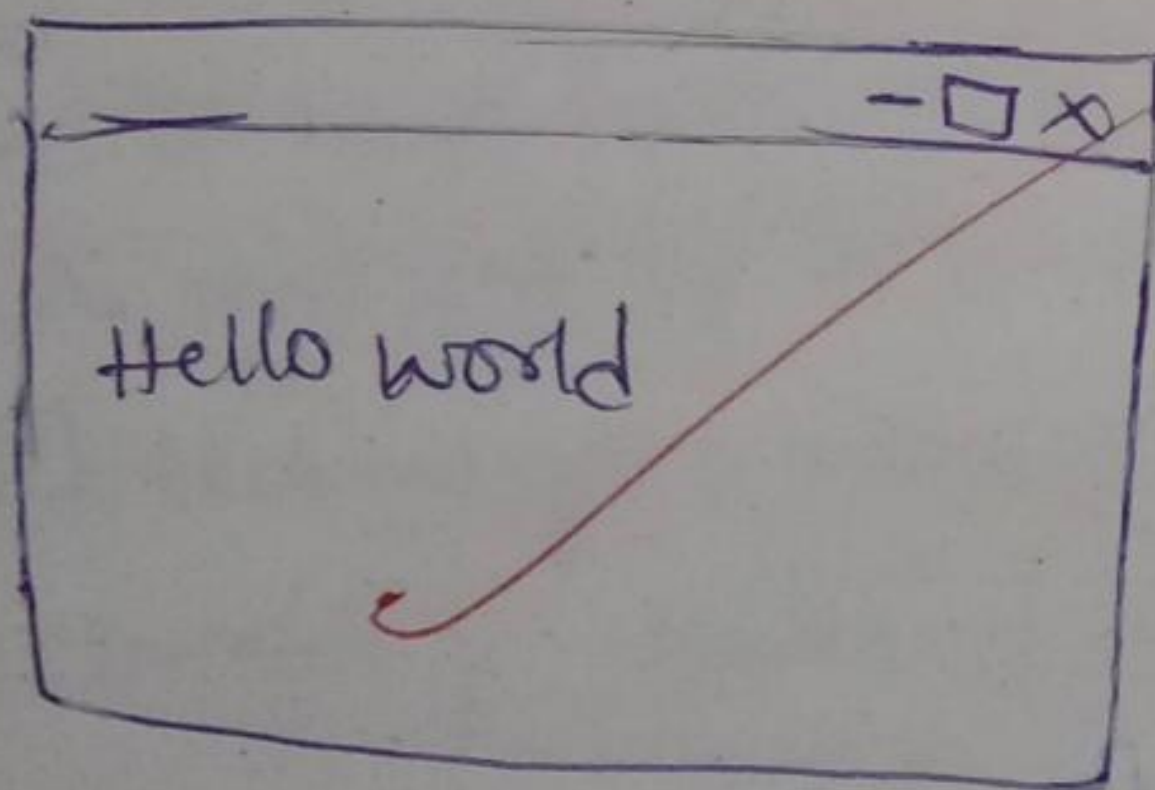 Hello world